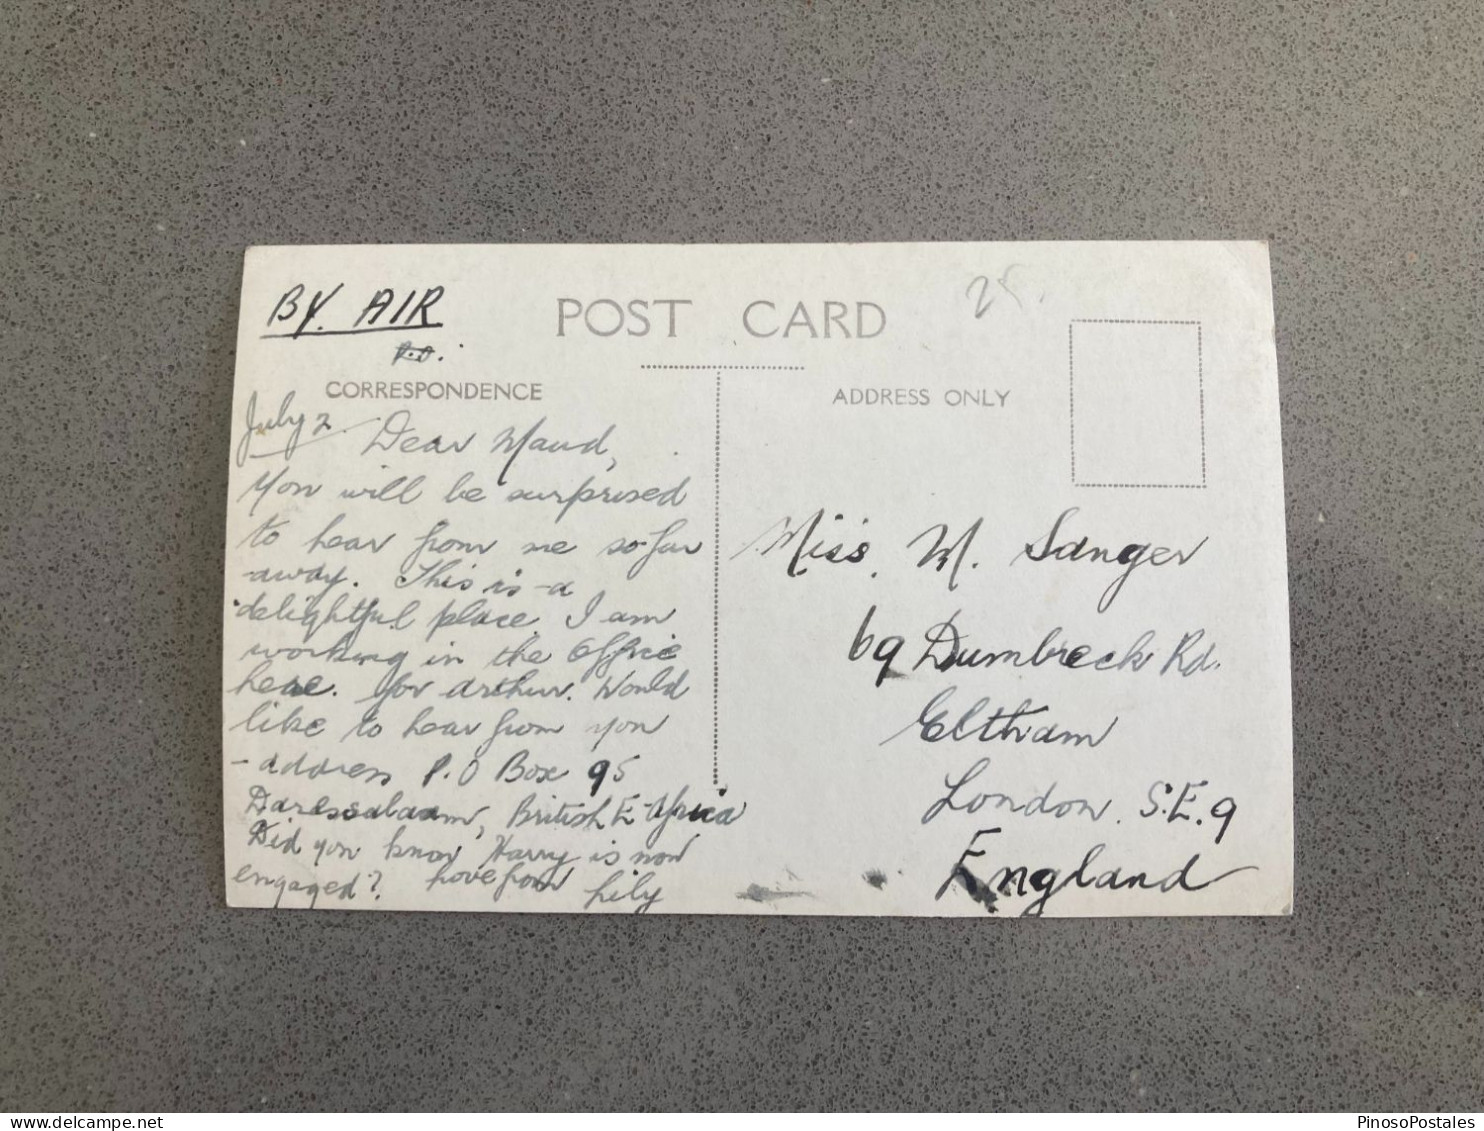 BY. AIR
POST CARD
25.
P.O.
CORRESPONDENCE
ADDRESS ONLY
July 2. Dear Maud,
You will be surprised
to hear from me so far
away. This is a
delightful place. I am
working in the Office
here. for Arthur. Would
like to hear from you
- address P.O Box 95
Daressalaam, British E Africa
Did you know Harry is now
engaged? Love from Lily
Miss. M. Sanger
69 Dumbreck Rd.
Eltham
London. S.E.9
England
PinosoPostales